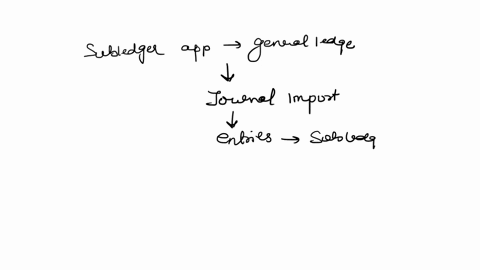 Subledger app → general ledge
↓
Journal import
↓
entries → Subledg